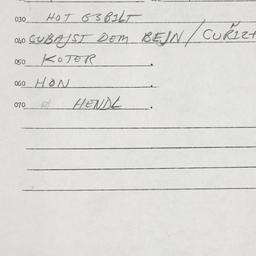 030 HOT GЗBILT
040 GUBAJST DEM BEJN / CUŘIZT
050 KOTER .
060 HON .
070 HENDL .